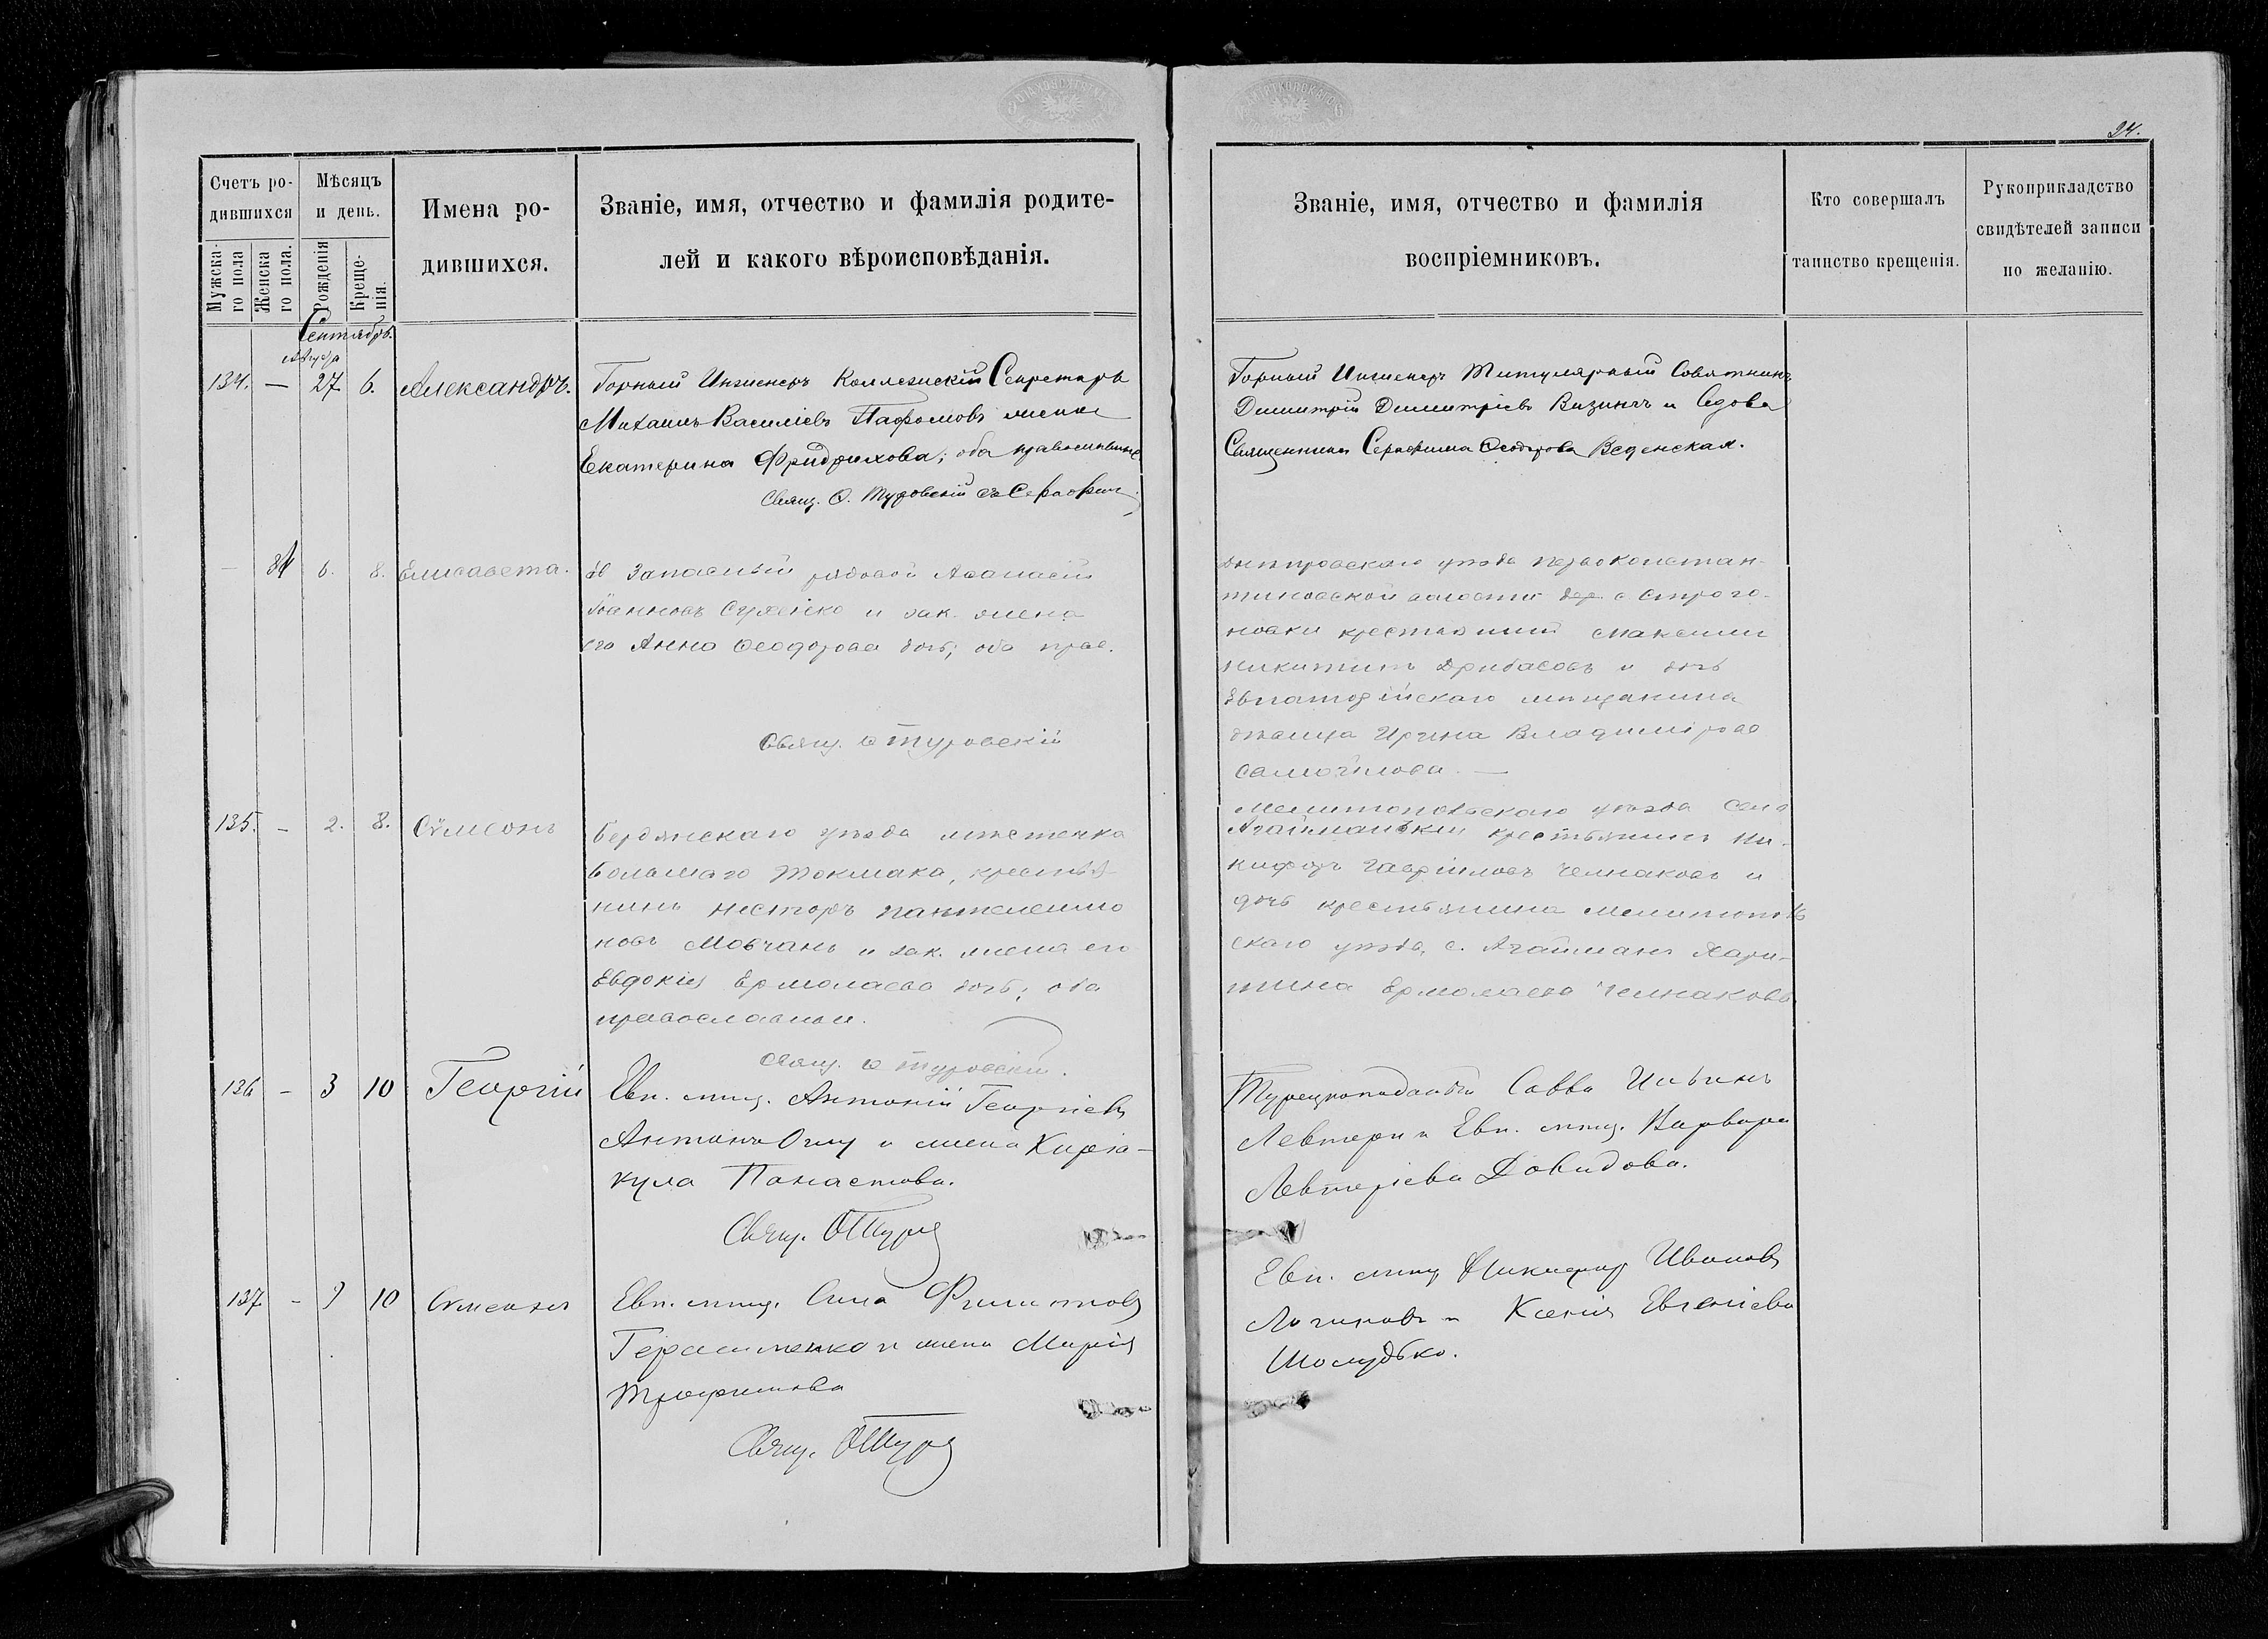 24.
Счетъ ро-
дившихся
Мѣсяцъ
и день.
Имена ро-
дившихся.
Званіе, имя, отчество и фамилія родите-
лей и какого вѣроисповѣданія.
Званіе, имя, отчество и фамилія
воспріемниковъ.
Кто совершалъ
таинство крещенія.
Рукоприкладство
свидѣтелей записи
по желанію.
Мужска-
го пола
Женска
го пола.
Рожденія
Креще-
нія.
Сентябрь.
134. — 27 6. Александръ.
Горный Инженеръ Коллежскій Секретарь
Михаилъ Василіевъ жена
Екатерина Фридрихова; оба православные
Свящ. О. Туровскій
Горный Инженеръ Титулярный Совѣтникъ
Димитрій Димитріевъ Визинъ и вдова
Священника Серафима Ѳеодорова Веденская.
— 84 6. 8. Елисавета.
Запасный рядовой Аѳанасій
Іоанновъ и зак. жена
его Анна Ѳеодорова дочь; оба прав.
Свящ. Ѳ Туровскій
Днѣпровскаго уѣзда Первоконстан-
тиновской волости с Строго-
новки крестьянинъ Максимъ
Никитинъ Дрибасовъ и дочь
Евпаторійскаго мѣщанина
дѣвица Ирина Владимірова
Самойлова. —
135. — 2. 8. Сѵмеонъ
Бердянскаго уѣзда мѣстечка
Большаго Токмака, крестья-
нинъ Несторъ Пантелеимо
новъ Мовчанъ и зак. жена его
Евдокія Ермолаева дочь; оба
православные.
Свящ. Ѳ Туровскій.
Мелитопольскаго уѣзда села
Агайманъ крестьянинъ Ни-
кифоръ Гавріиловъ Челнаковъ и
дочь крестьянина Мелитополь
скаго уѣзда, с. Агайманъ Хари-
тина Ермолаева Челнакова
136 — 3 10 Георгій
Евп. мѣщ. Антоній Георгіевъ
Антонъ Оглу и жена Киріа-
кула Панаетова.
Свящ. ѲТуро
Турецкоподанный Савва Ильинъ
Левтери и Евп. мѣщ. Варвара
Левтеріева Давидова.
137 — 9 10 Сѵмеонъ
Евп. мѣщ. Сила Филипповъ
Герасименко и жена Марія
Трофимова
Свящ. ѲТуро
Евп. мѣщ Никифоръ Ивановъ
Логиновъ и Ксенія Евгеніева
Шолудько.